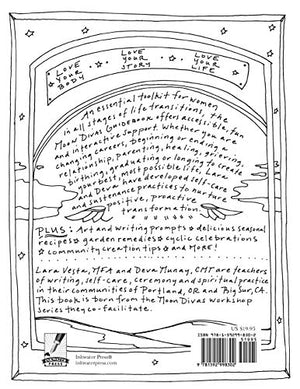 LOVE YOUR BODY
LOVE YOUR STORY
LOVE YOUR LIFE
An essential toolkit for women
in all stages of life transitions, the
Moon Divas Guidebook offers accessible, fun
and interactive support. Whether you are
changing careers, beginning or ending a
relationship, parenting, healing, grieving,
birthing, graduating or longing to create
your best, most possible life, Lara
and Deva have developed self-care
and sustenance practices to nurture
positive, proactive
transformation.
PLUS: Art and writing prompts • delicious seasonal
recipes • garden remedies • cyclic celebrations
• community creation tips and MORE!
Lara Vesta, MFA and Deva Munay, CMT are teachers
of writing, self-care, ceremony and spiritual practice
in their communities of Portland, OR and Big Sur, CA.
This book is born from the Moon Divas workshop
series they co-facilitate.
INKWATER PRESS
Inkwater Press
inkwaterpress.com
US $19.95